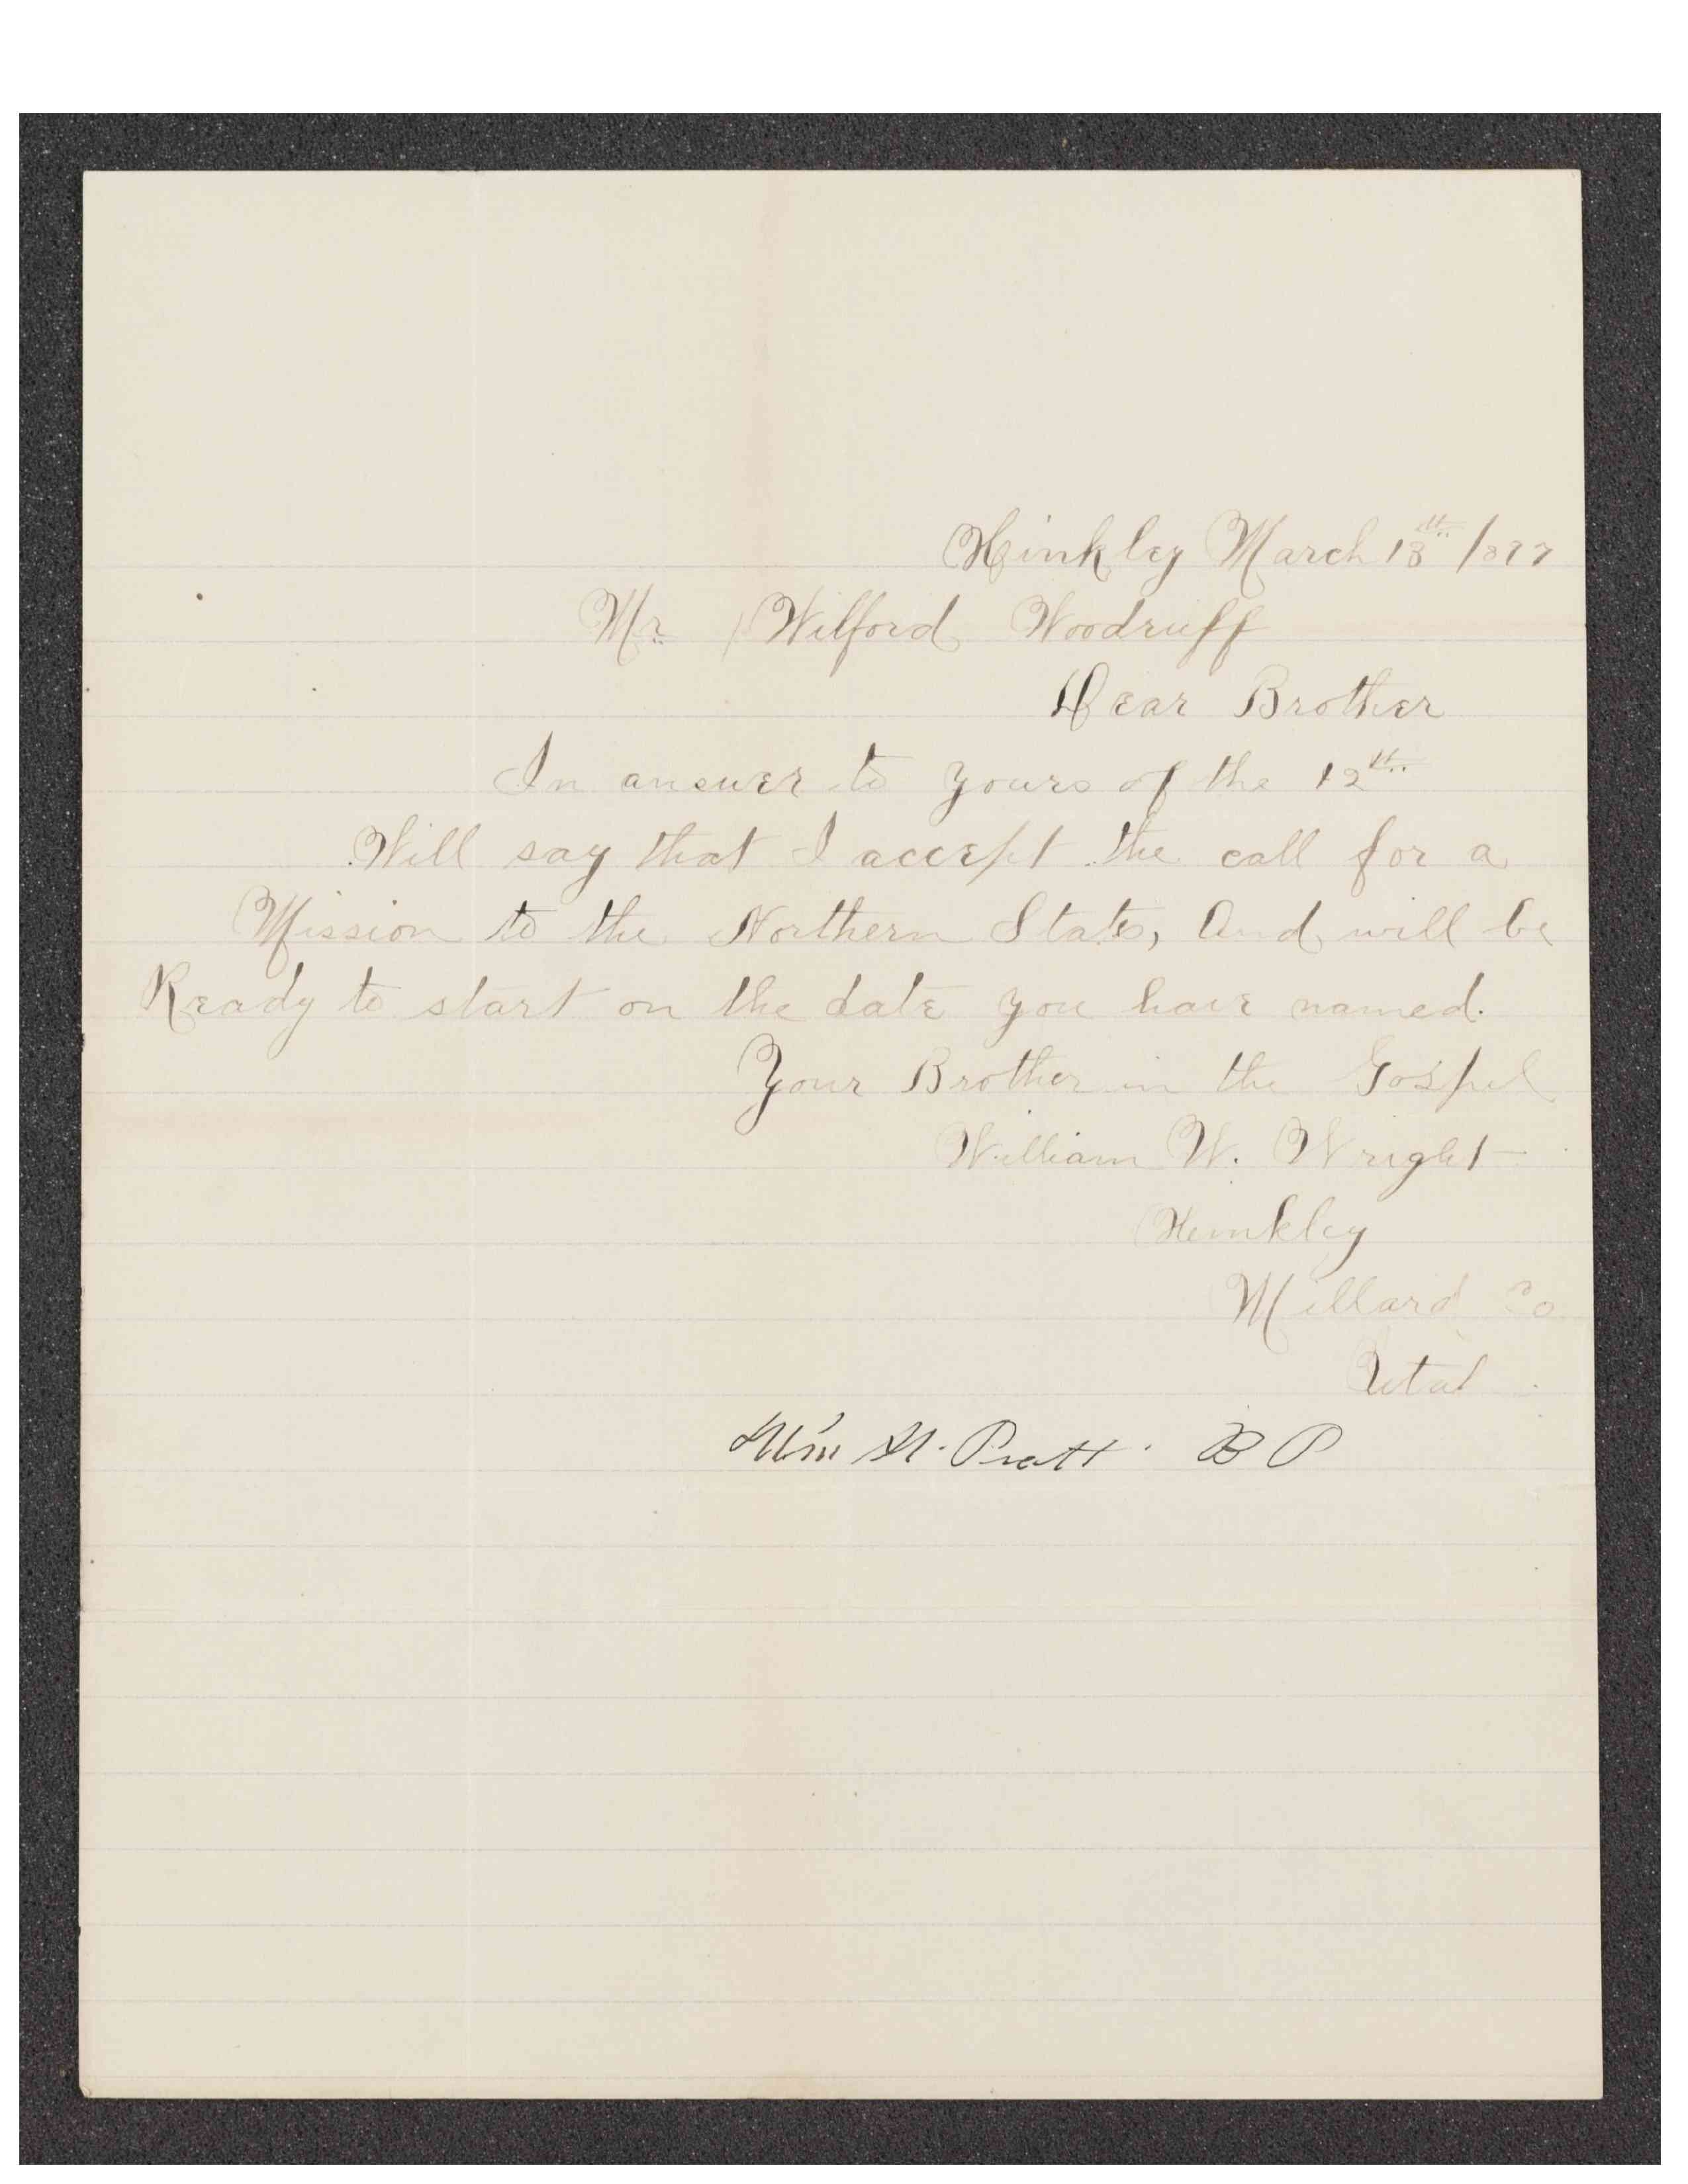 Hinkley March 18th /897
Mr Wilford Woodruff
Dear Brother
In answer to yours of the 12th
Will say that I accept the call for a
Mission to the Northern States, And will be
Ready to start on the date you have named.
Your Brother in the Gospel
William W. Wright
Hinkley
Millard Co
Utah
Wm H. Pratt. BP